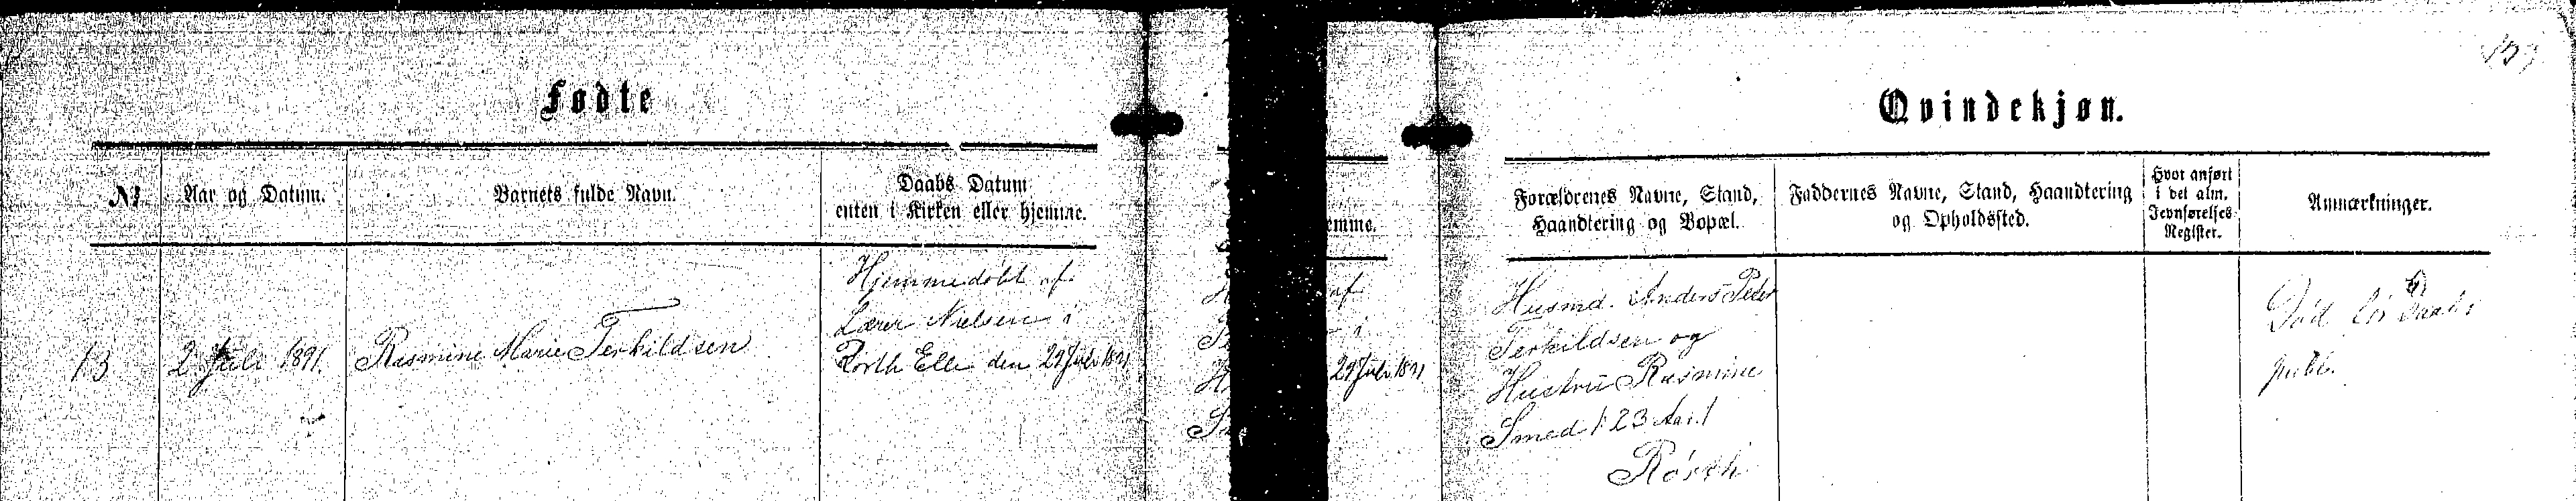 Fødte
Qvindekjøn.
№
Aar og Datum.
Barnets fulde Navn.
Daabs Datum
enten i Kirken eller hjemme.
emme.
Forældrenes Navne, Stand,
Haandtering og Bopæl.
Faddernes Navne, Stand, Haandtering
og Opholdssted.
Hvor anført
i det alm.
Jevnførelses-
Register.
Anmærkninger.
13
2 Juli 1891.
Rasmine Marie Terkildsen
Hjemmedøbt af
Lærer Nielsen i
den 29 Juli 1891
af
i
29 Juli 1891
Husmd. Anders Peter
Terkildsen og
Hustru Rasmine
Smed /: 23 Aar. /
Rørth
Død før Daabs
publ.